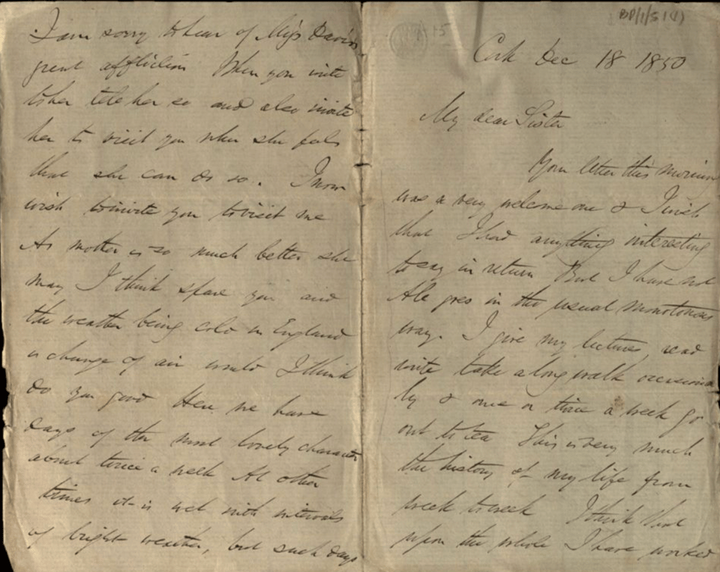 BP/1/5(1)
Cork Dec 18 1850
My dear Sister
Your letter this morning
was a very welcome one & I wish
that I had anything interesting
to say in return But I have not
All goes in the usual monotonous
way. I give my lectures, read
write take a long walk occasional
ly & once or twice a week go
out to tea This is very much
the history of my life from
week to week I think that
upon the whole I have worked
I am sorry to hear of Mrs Davis's
great affliction When you write
to her tell her so and also invite
her to visit you when she feels
that she can do so. I now
wish to invite you to visit me
As mother is so much better she
may I think spare you and
the weather being cold in England
a change of air would I think
do you good Here we have
days of the most lovely character
about twice a week At other
times it is wet with intervals
of bright weather, but such days